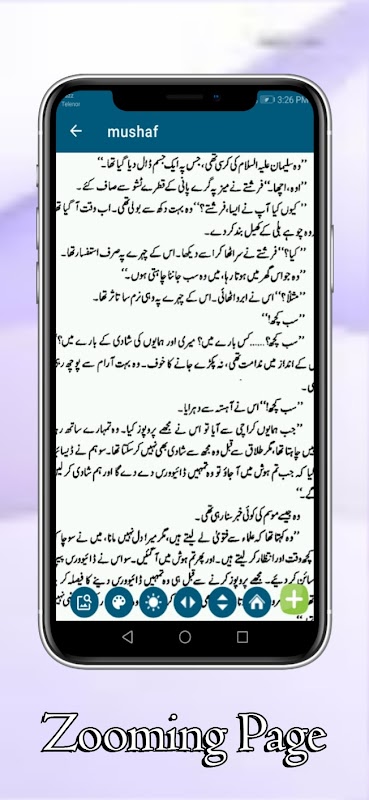 Telenor
3:26 PM
mushaf
”وہ سلیمان علیہ السلام کی کرسی تھی، جس پہ ایک جسم ڈال دیا گیا تھا۔“
”اوہ، اچھا۔“ فرشتے نے میز پہ گرے پانی کے قطرے ٹشو سے صاف کئے۔
”کیوں کیا آپ نے ایسا، فرشتے؟“ وہ بہت دکھ سے بولی تھی۔ اب وقت آ گیا تھا
وہ چوہے بلی کے کھیل بند کر دے۔
”کیا؟“ فرشتے نے سر اٹھا کر اسے دیکھا۔ اس کے چہرے پہ صرف استفسار تھا۔
”وہ جو اس گھر میں ہوتا رہا، میں وہ سب جاننا چاہتی ہوں۔“
”مثلاً؟“ اس نے ابرو اٹھائی۔ اس کے چہرے پہ وہی نرم سا تاثر تھا۔
”سب کچھ!“
”سب کچھ؟...... کس بارے میں؟ میری اور ہمایوں کی شادی کے بارے میں؟“
کے انداز میں ندامت تھی، نہ پکڑے جانے کا خوف۔ وہ بہت آرام سے پوچھ رہی
ی۔
”سب کچھ!“ اس نے آہستہ سے دہرایا۔
”جب ہمایوں کراچی سے آیا تو اس نے مجھے پروپوز کیا۔ وہ تمہارے ساتھ رہ
نہیں چاہتا تھا، مگر طلاق سے قبل وہ مجھ سے شادی بھی نہیں کر سکتا تھا۔ سو ہم نے ڈیسائیڈ
کیا کہ جب تم ہوش میں آ جاؤ تو وہ تمہیں ڈائیوورس دے دے گا اور ہم شادی کر لیں
گے۔“
وہ جیسے موسم کی کوئی خبر سنا رہی تھی۔
”وہ کہتا تھا کہ علماء سے فتویٰ لے لیتے ہیں، مگر میرا دل نہیں مانا، میں نے سوچا کہ
کچھ وقت اور انتظار کر لیتے ہیں۔ اور پھر تم ہوش میں آ گئیں۔ سو اس نے ڈائیوورس پیپرز
سائن کر دئیے۔ مجھے پروپوز کرنے سے قبل ہی وہ تمہیں ڈائیوورس دینے کا فیصلہ کر
Zooming Page